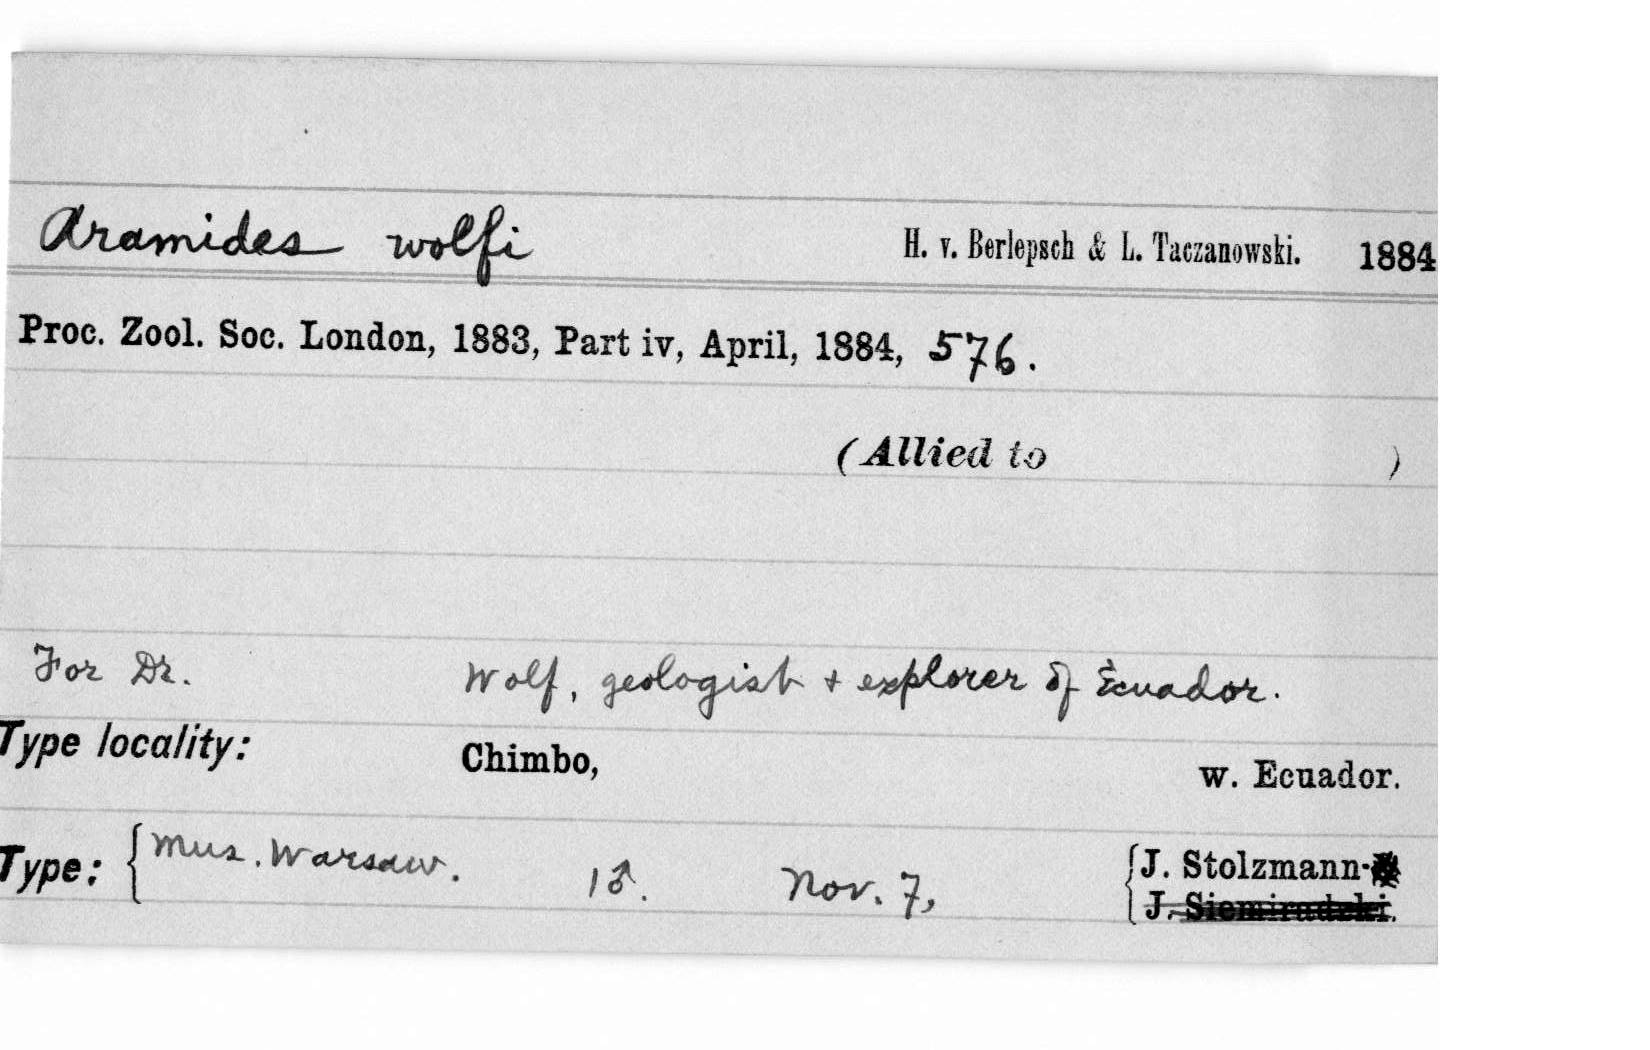 Aramides wolfi H. v. Berlepsch & L. Taczanowski. 1884
Proc. Zool. Soc. London, 1883, Part iv, April, 1884, 576.
(Allied to )
For Dr. Wolf, geologist + explorer of Ecuador.
Type locality: Chimbo, w. Ecuador.
Type: { Mus. Warsaw. 1♂. Nov. 7, { J. Stolzmann
J. Siemiradzki.